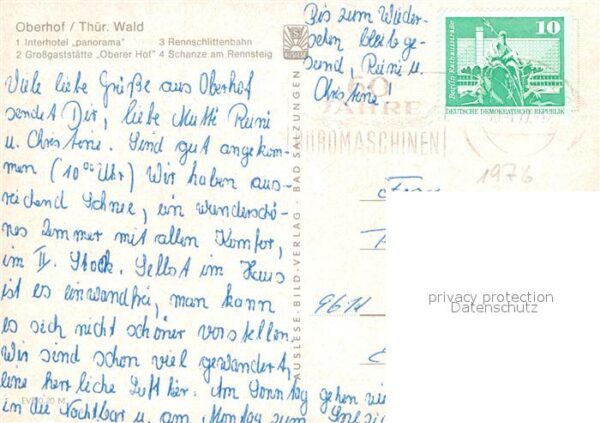 Oberhof / Thür. Wald
1 Interhotel „panorama"
2 Großgaststätte „Oberer Hof"
3 Rennschlittenbahn
4 Schanze am Rennsteig
Viele liebe Grüße aus Oberhof
sendet Dir, liebe Mutti Reini
u. Christene. Sind gut angekom-
men (10°° Uhr) Wir haben aus-
reichend Schnee, ein wunderschö-
nes Zimmer mit allen Komfor,
im II. Stock. Selbst im Haus
ist es einwandfrei, man kann
es sich nicht schöner vorstellen.
Wir sind schon viel gewandert,
eine herrliche Luft hier. Am Sonntag gehen wir
in die Nachtbar u. am Montag zum
EVP 0,20 M
Bis zum Wieder-
sehen bleib ge-
sund, Reini u.
Christene!
AUSLESE-BILD-VERLAG · BAD SALZUNGEN
10
Berlin, Rathausstraße
DEUTSCHE DEMOKRATISCHE REPUBLIK
JAHRE
BÜROMASCHINEN
1976
privacy protection
Datenschutz